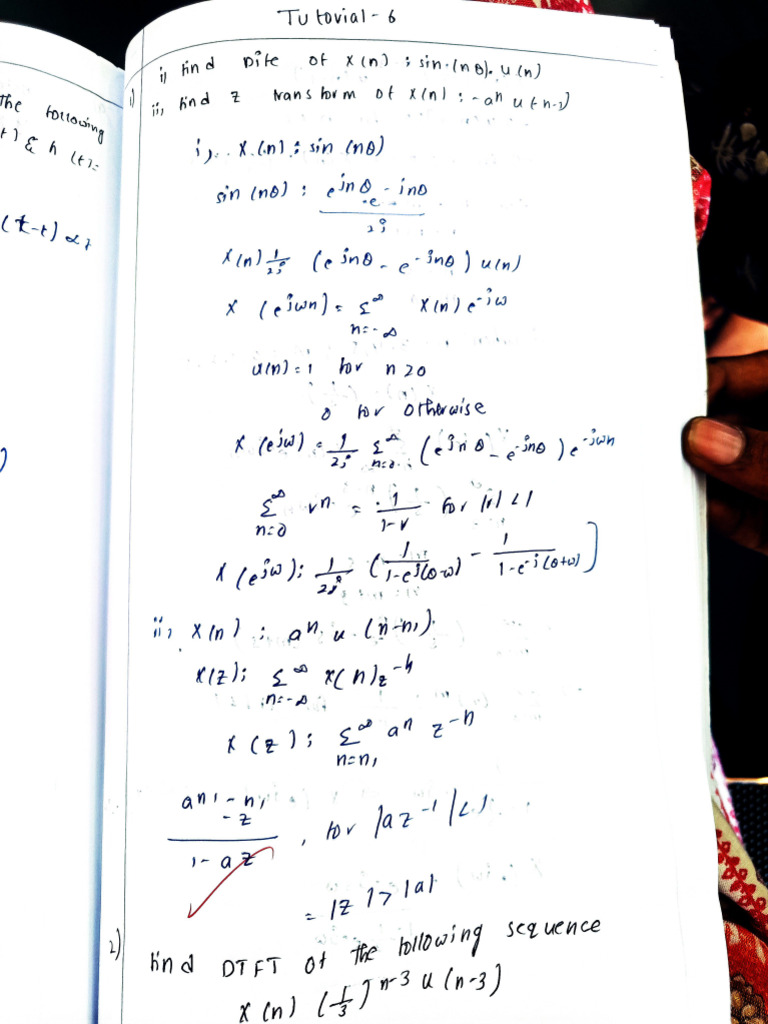 Tutorial - 6
1) i) find DTFT of x(n) : sin (nθ). u(n)
ii, find z transform of x(n) : -aⁿ u(-n-1)
the following
+) & h (t)=
i,. x(n) : sin (nθ)
sin (nθ) : e^jnθ - e^-jnθ
2j
x(n) 1/2j (e^jnθ - e^-jnθ) u(n)
x (e^jωn) = Σ^∞ n=-∞ x(n) e^-jω
u(n) = 1 for n ≥ 0
0 for otherwise
x (e^jω) = 1/2j Σ^∞ n=0 (e^jnθ - e^-jnθ) e^-jωn
Σ^∞ n=0 rⁿ = 1/1-r for |r| < 1
x (e^jω) : 1/2j (1/1-e^j(θ-ω) - 1/1-e^-j(θ+ω)]
ii, x(n) : aⁿ u (n-n₁)
x(z) : Σ^∞ n=-∞ x(n) z^-n
x(z) : Σ^∞ n=n₁ aⁿ z^-n
a^n₁ - n₁
- z
1 - a z , for |az⁻¹| < 1
= |z| > |a|
2) find DTFT of the following sequence
x(n) (1/3)^n-3 u(n-3)